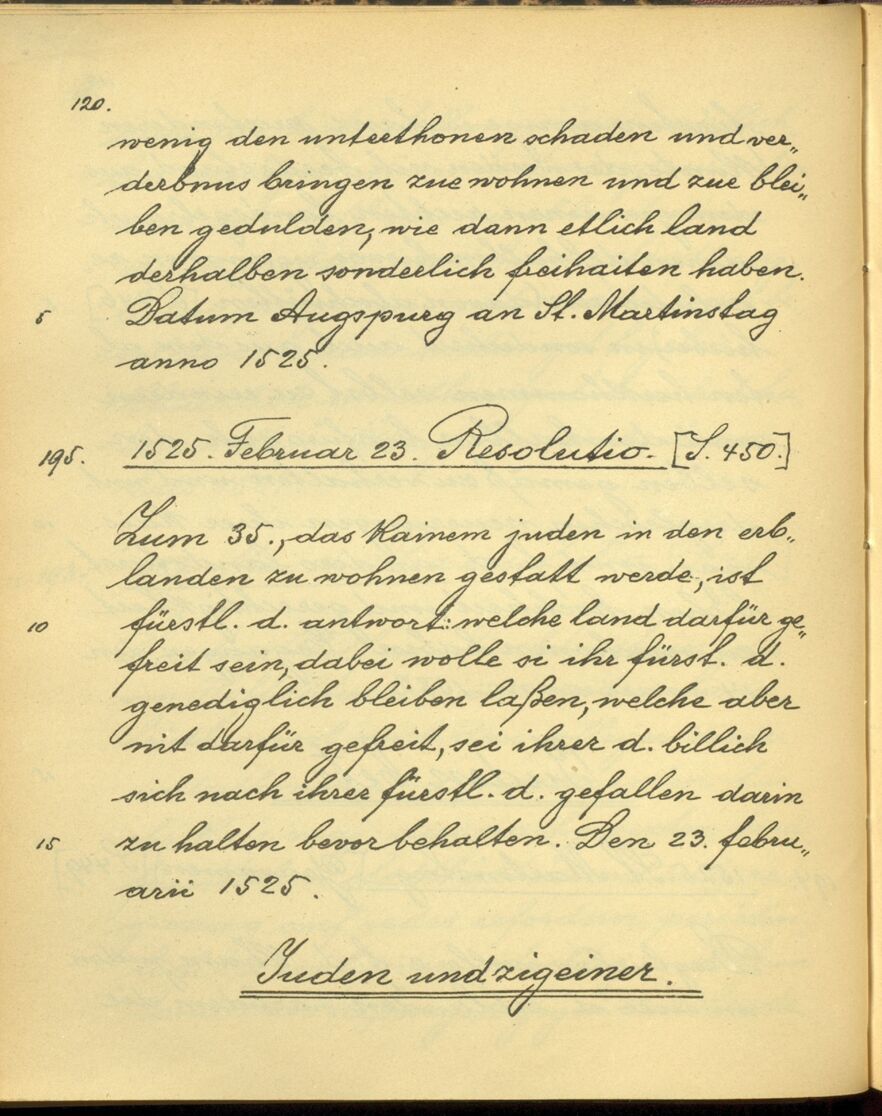 120.
wenig den unterthonen schaden und ver„
derbnus bringen zue wohnen und zue blei„
ben gedulden, wie dann etlich land
derhalben sonderlich freihaiten haben.
5 Datum Augspurg an St. Martinstag
anno 1525.
195. 1525. Februar 23. Resolutio. [S. 450.]
Zum 35., das kainem juden in den erb„
landen zu wohnen gestatt werde, ist
10 fürstl. d. antwort: welche land darfür ge„
freit sein, dabei wolle si ihr fürst. d.
genediglich bleiben laßen, welche aber
nit darfür gefreit, sei ihrer d. billich
sich nach ihrer fürstl. d. gefallen darin
15 zu halten bevor behalten. Den 23. febru„
arii 1525.
Juden und zigeiner.